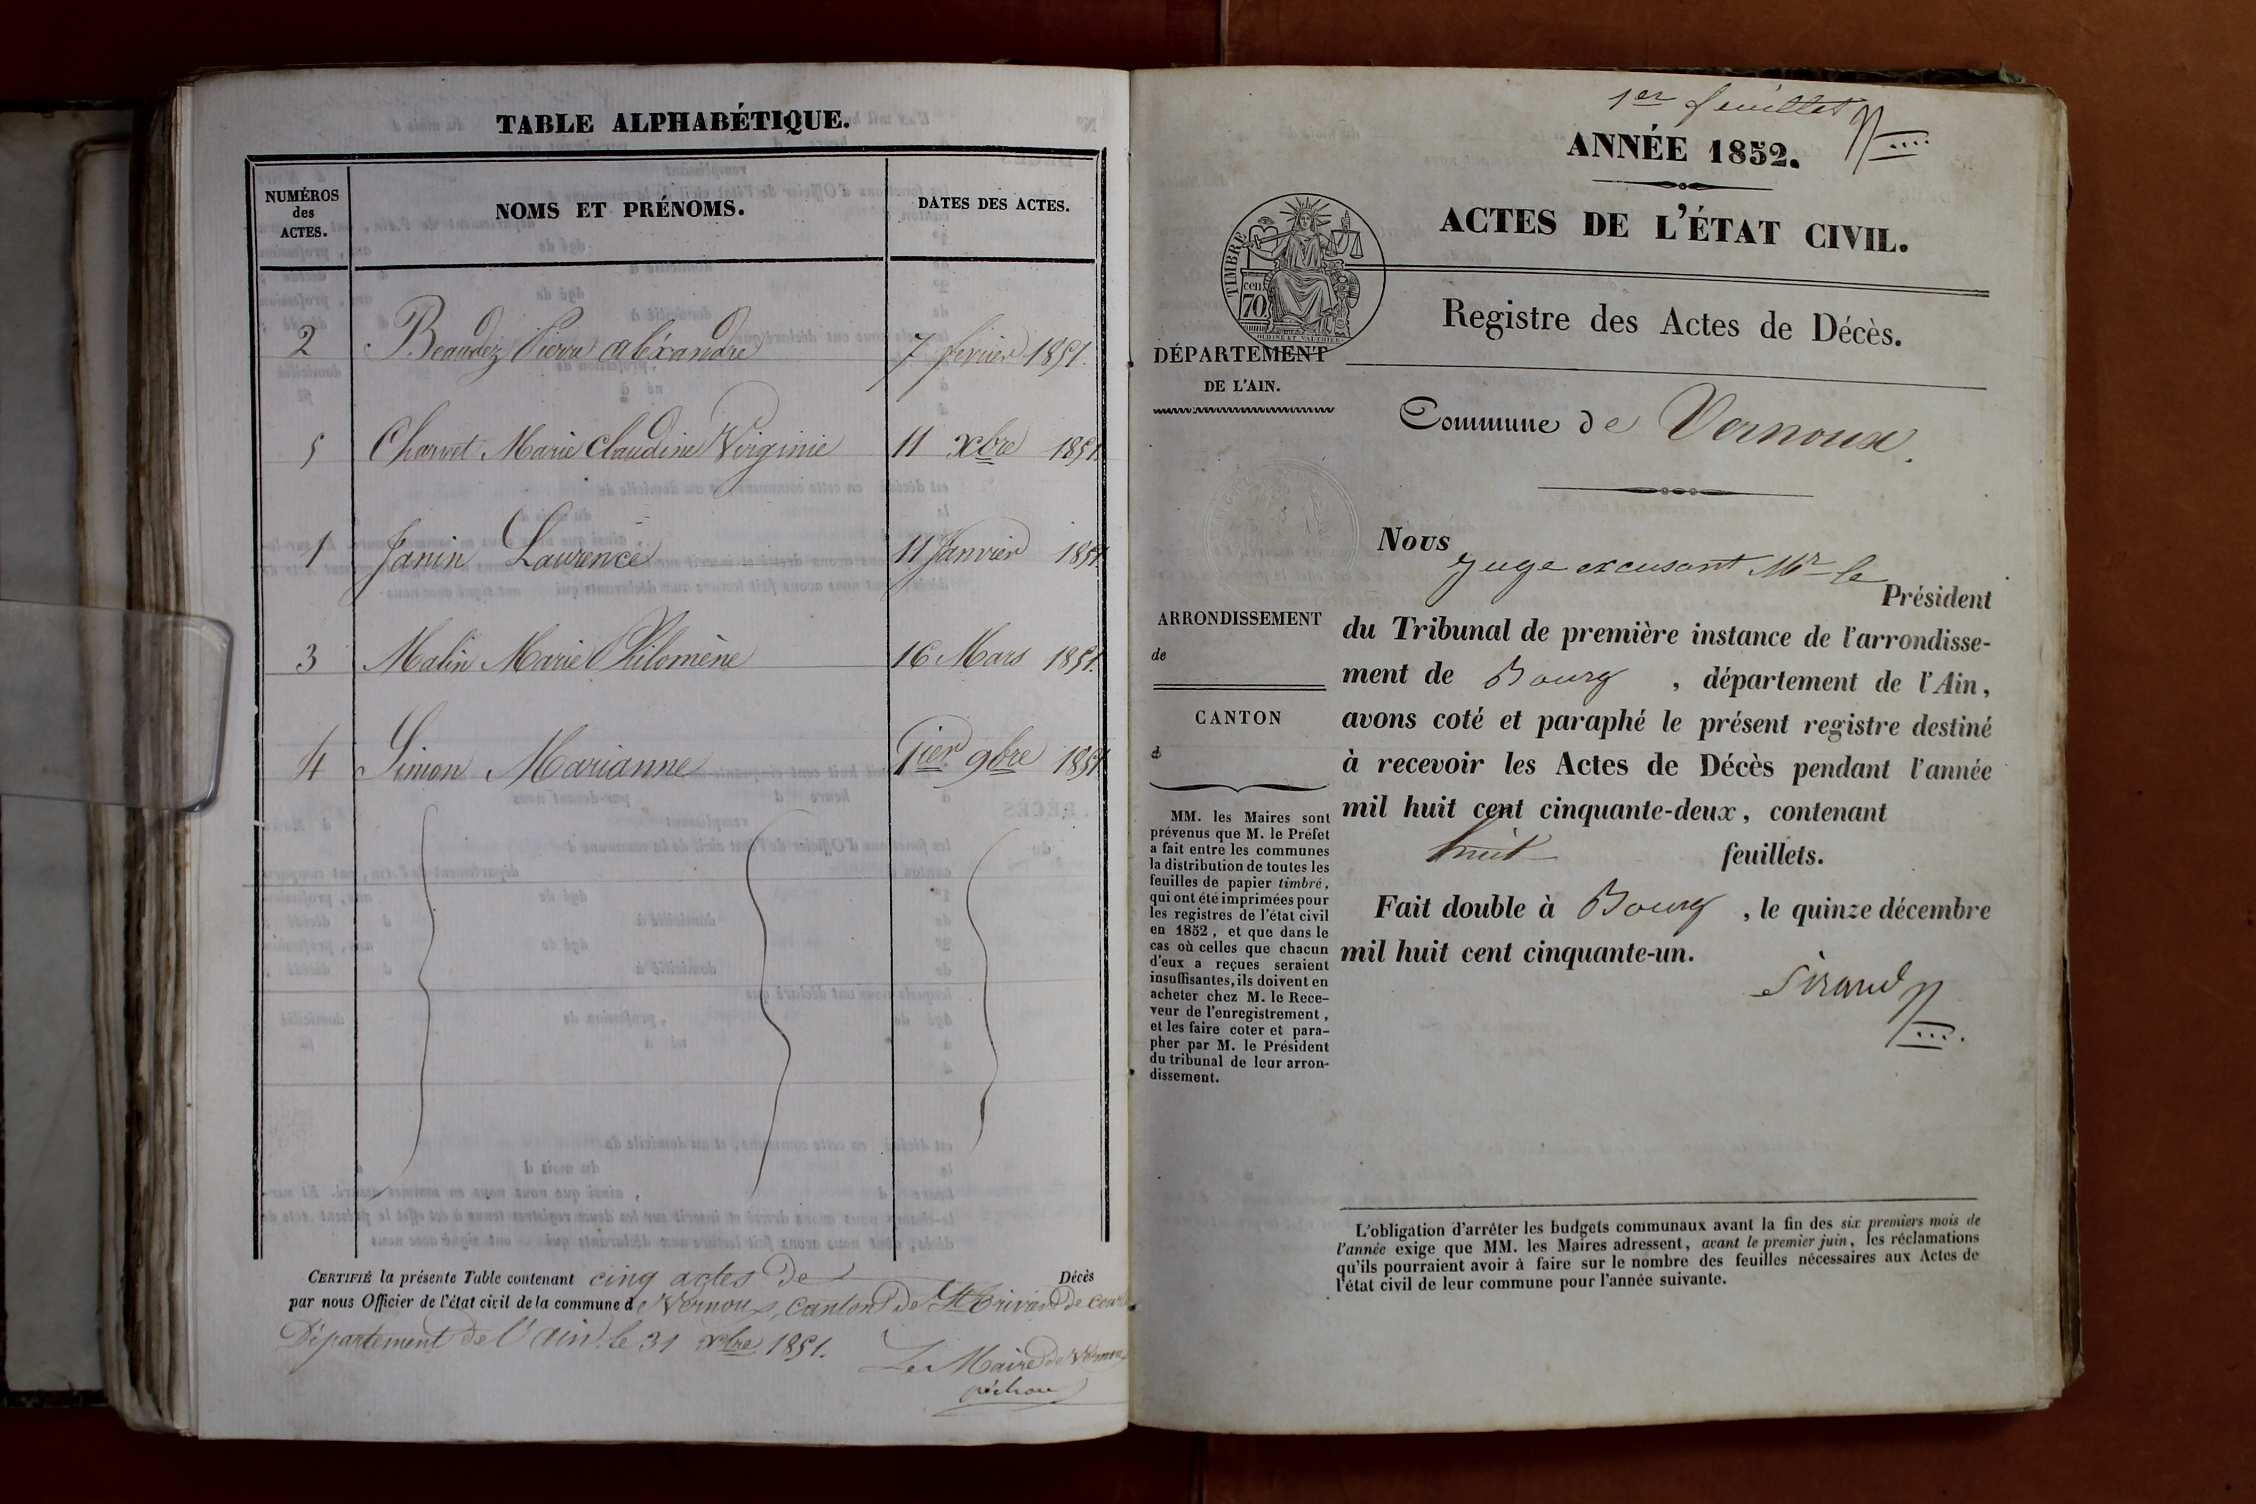 TABLE ALPHABÉTIQUE.
NUMÉROS
des
ACTES.
NOMS ET PRÉNOMS.
DATES DES ACTES.
2 Beaudez Pierre aléxandre 7 fevrier 1851.
5 Charvet Marie Claudine Virginie 11 xbre 1851
1 Janin Laurence 11 Janvier 1851
3 Malin Marie Philomène 16 Mars 1851.
4 Simon Marianne 1ier 9bre 1851
CERTIFIÉ la présente Table contenant cinq actes de Décès
par nous Officier de l'état civil de la commune de Vernoux, canton de St Trivier de Cour
Département de l'ain le 31 xbre 1851.
Le Maire de Vernoux
1er feuillet
ANNÉE 1852.
ACTES DE L'ÉTAT CIVIL.
TIMBRE
70 cen.
Registre des Actes de Décès.
DÉPARTEMENT
DE L'AIN.
Commune de Vernoux.
Nous
Juge excusant Mr le
Président
ARRONDISSEMENT
de
CANTON
d
du Tribunal de première instance de l'arrondisse-
ment de Bourg, département de l'Ain,
avons coté et paraphé le présent registre destiné
à recevoir les Actes de Décès pendant l'année
mil huit cent cinquante-deux, contenant
huit feuillets.
Fait double à Bourg, le quinze décembre
mil huit cent cinquante-un.
Sirand
MM. les Maires sont
prévenus que M. le Préfet
a fait entre les communes
la distribution de toutes les
feuilles de papier timbré,
qui ont été imprimées pour
les registres de l'état civil
en 1852, et que dans le
cas où celles que chacun
d'eux a reçues seraient
insuffisantes, ils doivent en
acheter chez M. le Rece-
veur de l'enregistrement,
et les faire coter et para-
pher par M. le Président
du tribunal de leur arron-
dissement.
L'obligation d'arrêter les budgets communaux avant la fin des six premiers mois de
l'année exige que MM. les Maires adressent, avant le premier juin, les réclamations
qu'ils pourraient avoir à faire sur le nombre des feuilles nécessaires aux Actes de
l'état civil de leur commune pour l'année suivante.